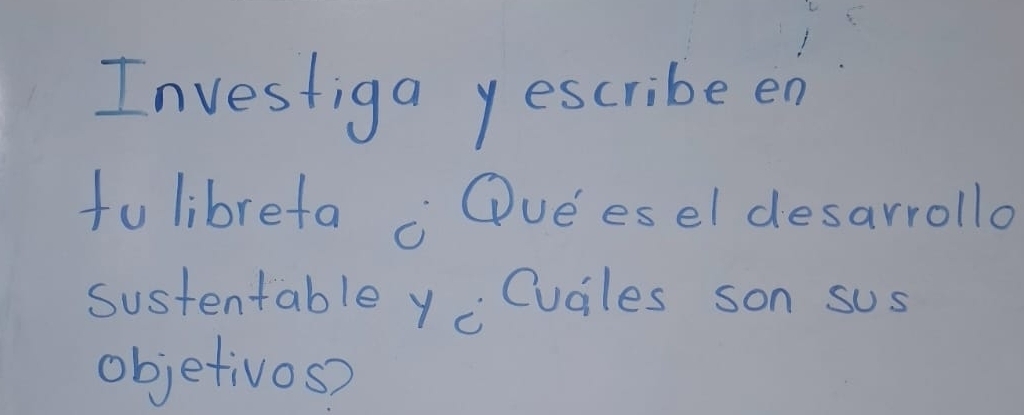 Investiga y escribe en
tu libreta ¿Qué es el desarrollo
sustentable y ¿Cuáles son sus
objetivos?